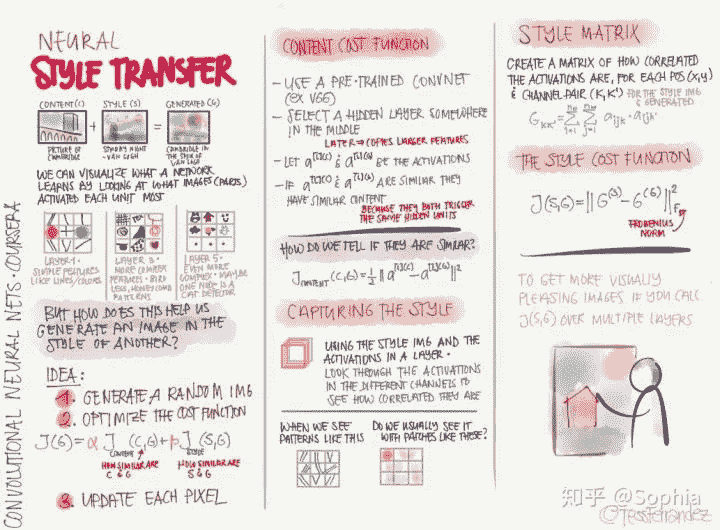 CONVOLUTIONAL NEURAL NETS · COURSERA
NEURAL
STYLE TRANSFER
CONTENT(C) STYLE(S) GENERATED(G)
+ =
PICTURE OF CAMBRIDGE
STARRY NIGHT
-VAN GOGH
CAMBRIDGE IN
THE STYLE OF
VAN GOGH
WE CAN VISUALIZE WHAT A NETWORK
LEARNS BY LOOKING AT WHAT IMAGES (PARTS)
ACTIVATED EACH UNIT MOST
LAYER 1 ·
SIMPLE FEATURES
LIKE LINES/COLORS
LAYER 3 ·
MORE COMPLEX
FEATURES - BIRD
LEGS, HONEYCOMB
PATTERNS
LAYER 5 ·
EVEN MORE
COMPLEX · MAYBE
ONE NODE IS A
CAT DETECTOR
BUT HOW DOES THIS HELP US
GENERATE AN IMAGE IN THE
STYLE OF ANOTHER?
IDEA:
1. GENERATE A RANDOM IMG
2. OPTIMIZE THE COST FUNCTION
J(G) = α J CONTENT (C,G) + β J STYLE (S,G)
HOW SIMILAR ARE
C & G
HOW SIMILAR ARE
S & G
3. UPDATE EACH PIXEL
CONTENT COST FUNCTION
- USE A PRE-TRAINED CONVNET
(EX VGG)
- SELECT A HIDDEN LAYER SOMEWHERE
IN THE MIDDLE
LATER ⇒ COPIES LARGER FEATURES
- LET a[l](C) & a[l](G) BE THE ACTIVATIONS
- IF a[l](C) & a[l](G) ARE SIMILAR THEY
HAVE SIMILAR CONTENT
BECAUSE THEY BOTH TRIGGER
THE SAME HIDDEN UNITS
HOW DO WE TELL IF THEY ARE SIMILAR?
J CONTENT (C,G) = ½ || a[l](C) - a[l](G) ||²
CAPTURING THE STYLE
USING THE STYLE IMG AND THE
ACTIVATIONS IN A LAYER ·
LOOK THROUGH THE ACTIVATIONS
IN THE DIFFERENT CHANNELS TO
SEE HOW CORRELATED THEY ARE
WHEN WE SEE
PATTERNS LIKE THIS
DO WE USUALLY SEE IT
WITH PATCHES LIKE THESE?
STYLE MATRIX
CREATE A MATRIX OF HOW CORRELATED
THE ACTIVATIONS ARE, FOR EACH POS (X,Y)
& CHANNEL PAIR (K,K') FOR THE STYLE IMG
& GENERATED
Gkk' = Σ Σ aijk · aijk'
THE STYLE COST FUNCTION
J(S,G) = || G(S) - G(G) ||² F
FROBENIUS
NORM
TO GET MORE VISUALLY
PLEASING IMAGES IF YOU CALC
J(S,G) OVER MULTIPLE LAYERS
知乎 @Sophia
@TessFernandez